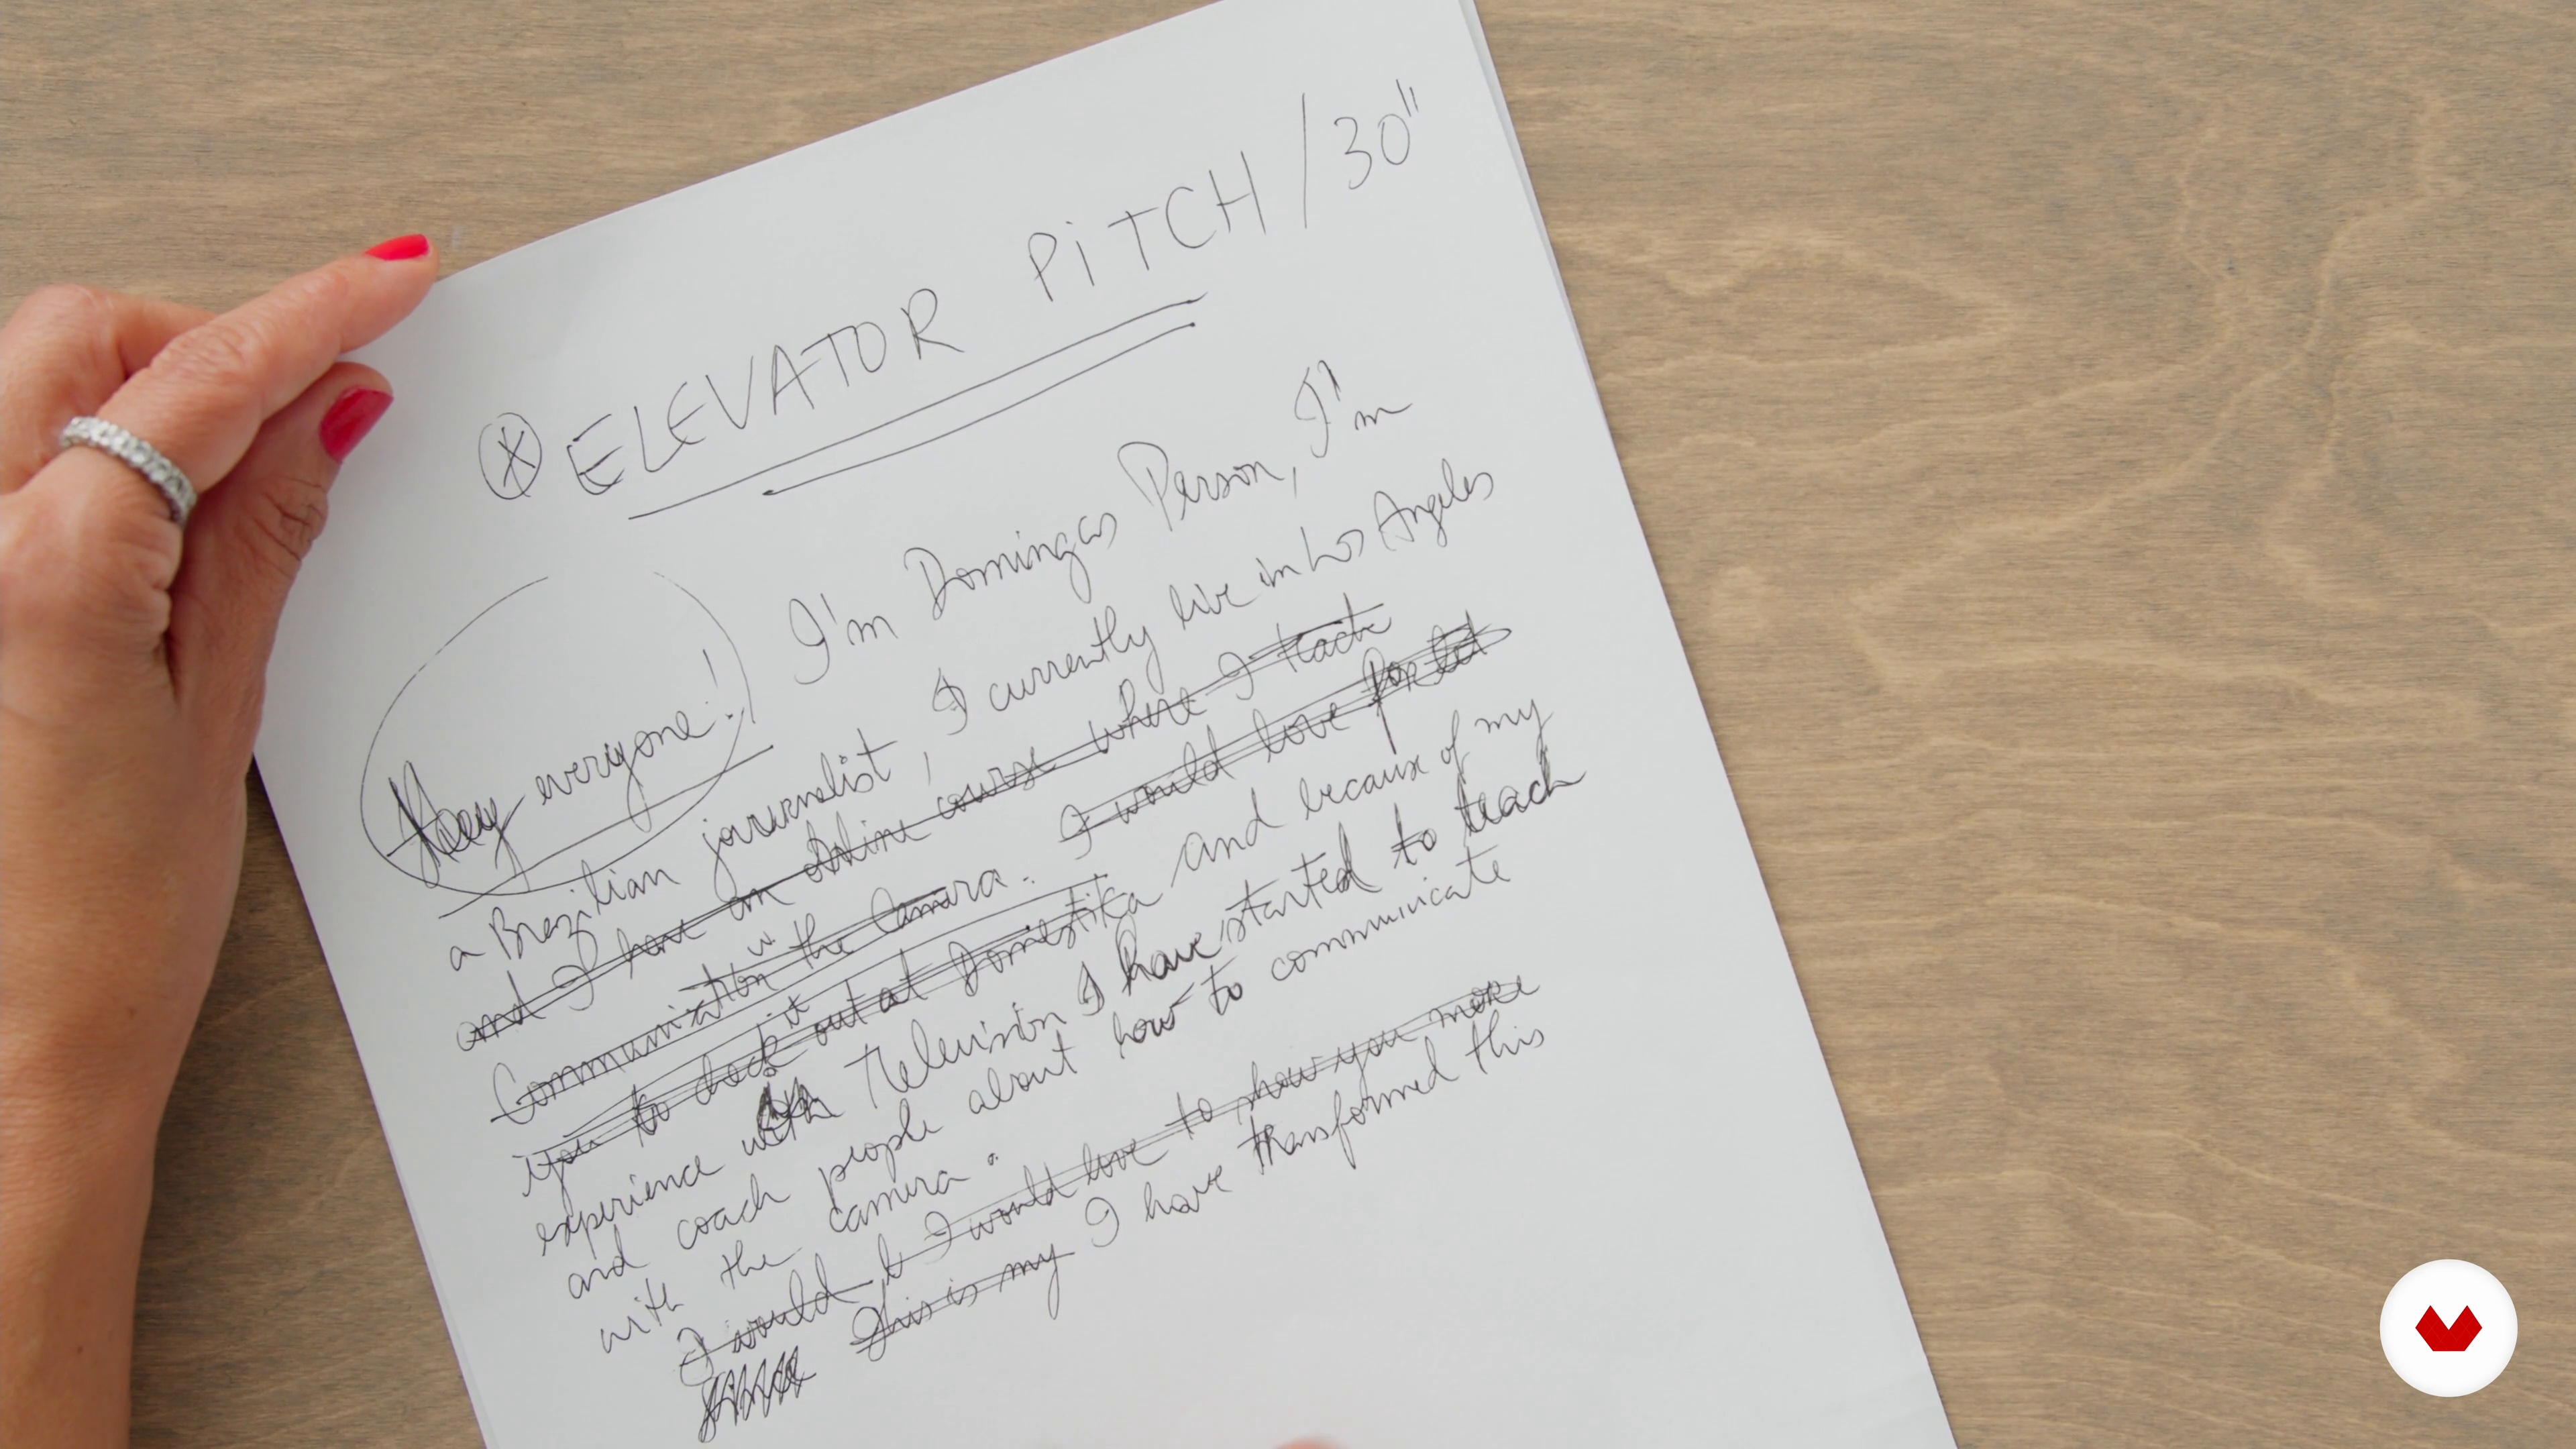 * ELEVATOR PITCH / 30"
Hey everyone! I'm Domingas Person, I'm
a Brazilian journalist, I currently live in Los Angeles
and I have an online course where I teach
Communication in the Camera. I would love for
you to check it out at Domestika and because of my
experience with Television I have started to teach
and coach people about how to communicate
with the camera.
I would I would love to show you more
This is my I have transformed this